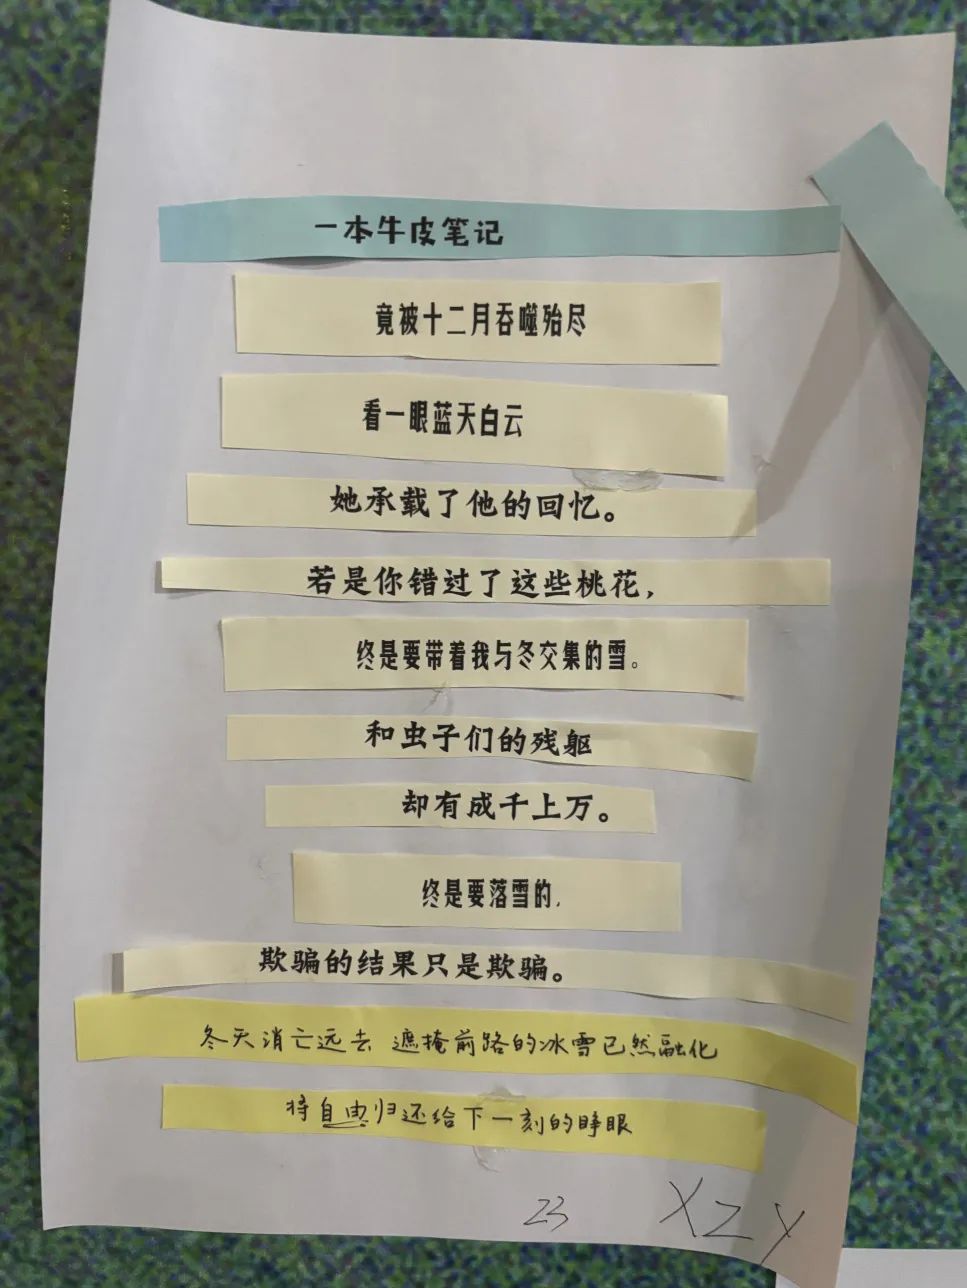 一本牛皮笔记
竟被十二月吞噬殆尽
看一眼蓝天白云
她承载了他的回忆。
若是你错过了这些桃花，
终是要带着我与冬交集的雪。
和虫子们的残躯
却有成千上万。
终是要落雪的，
欺骗的结果只是欺骗。
冬天消亡远去 遮掩前路的冰雪已然融化
将自由归还给下一刻的睁眼
23 XZY